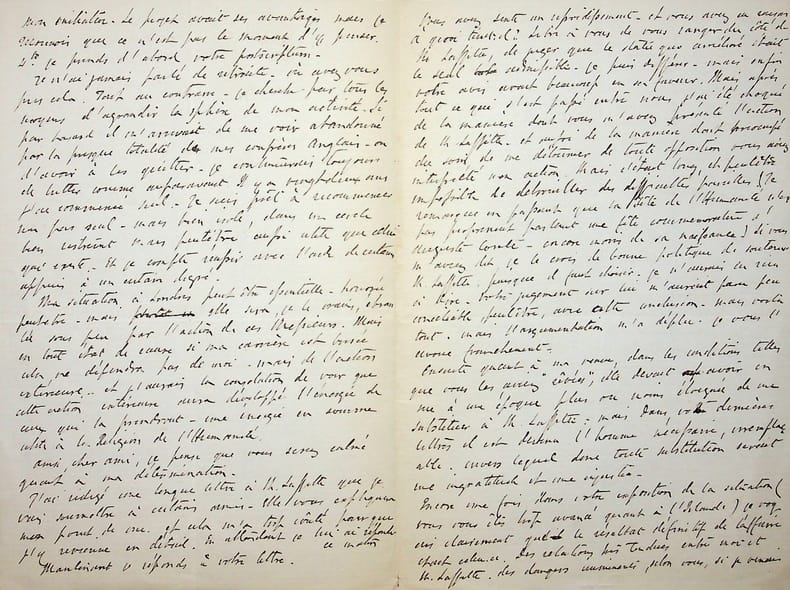 mon initiative. Le projet avait ses avantages mais je
reconnais que ce n'est pas le moment d'y penser.
2to je prends d'abord votre postscriptum.
Je n'ai jamais parlé de retraite. où avez vous
pris cela. Tout au contraire. je cherche par tous les
moyens d'agrandir la sphère de mon activité. Si
par hasard il m'arrivait de me voir abandonné
par la presque totalité de mes confrères anglais. ou
d'avoir à les quitter. je continuerais toujours
de lutter comme auparavant. Il y a vingt deux ans
j'ai commencé seul. Je suis prêt à recommencer
non pas seul. mais bien isolé, dans un cercle
bien restreint mais peutêtre aussi utile que celui
qui existe. Et je compte réussir avec l'aide de certains
appuis à un certain degré.
Ma situation à Londres peut être essentielle. honorée
peutêtre. mais elle sera, je le crains,
sous peu par l'action de ces Messieurs. Mais
en tout état de cause si ma carrière est brisée
cela ne dépendra pas de moi. mais de l'action
extérieure. et j'aurais la consolation de voir que
cette action extérieure aura développé l'énergie de
ceux qui la prendront. une énergie en somme
utile à la Religion de l'Humanité.
Ainsi, cher ami, je pense que vous serez calmé
quant à ma détermination.
J'ai rédigé une longue lettre à M. Laffitte que je
vais soumettre à certains amis. Elle vous expliquera
mon point de vue. et cela m'a trop coûté pour que
j'y revienne en détail. En attendant je lui ai répondu
ce matin
Maintenant je réponds à votre lettre.
Vous avez senti un refroidissement. et vous avez eu raison
à quoi tient-il? Libre à vous de vous ranger du côté de
M. Laffitte, de juger que le statu quo amélioré était
le seul admissible. je puis différer. mais enfin
votre avis avait beaucoup en sa faveur. Mais après
tout ce qui s'est passé entre nous j'ai été choqué
de la manière dont vous m'avez présenté l'action
de M. Laffitte. et aussi de la manière dont préoccupé
du soin de me détourner de toute opposition vous aviez
interprété mon action. Mais c'était long et peutêtre
impossible de débrouiller des difficultés pareilles (Je
remarque en passant que la fête de l'Humanité n'est
pas proprement parlant une fête commémorative d'
Auguste Comte. encore moins de sa naissance) Si vous
m'aviez dit je le crois de bonne politique de soutenir
M. Laffitte, puisque il faut choisir. je n'aurais eu rien
à dire. votre jugement sur lui m'aurait paru peu
conciliable peutêtre, avec cette conclusion. mais voilà
tout. mais l'argumentation m'a déplu. je vous l'
avoue franchement.
Ensuite quant à ma venue, dans les conditions telles
que vous les aviez "rêvées", elle devait avoir en
vue à une époque plus ou moins éloignée de me
substituer à M. Laffitte; mais dans vos dernières
lettres il est devenu l'homme nécessaire, irremplaç-
able. envers lequel donc toute substitution serait
une ingratitude et une injustice.
Encore une fois dans votre exposition de la situation (
vous vous êtes trop avancé quant à ) je voy-
ais clairement que le résultat définitif de l'affaire
était celui-ci. Des relations très tendues entre moi et
M. Laffitte. des dangers imminents, selon vous, si je venais